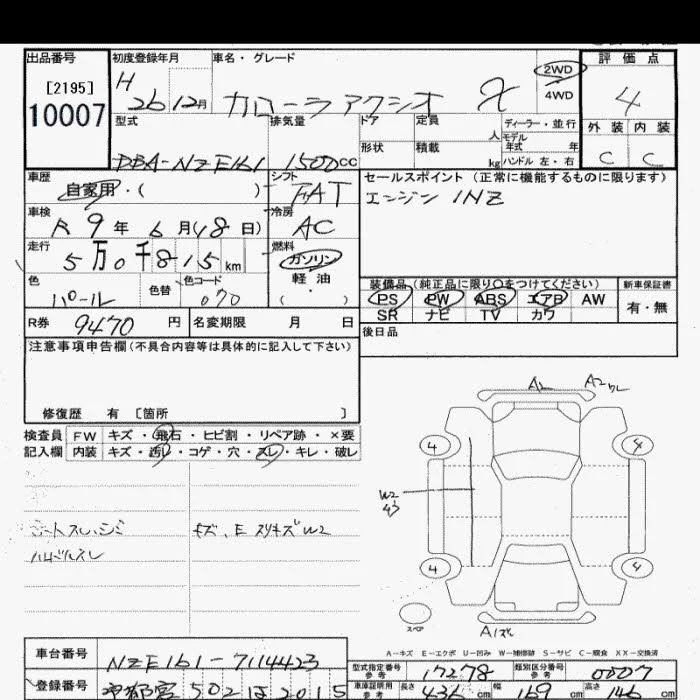 出品番号 初度登録年月 車名・グレード 評価点
[2195] H 26 12月 カローラアクシオ X 2WD 4WD 4
10007
型式 排気量 ドア 定員 人 ディーラー・並行 外装 内装
DBA-NZE161 1500cc 形状 積載 kg モデル年式 年 ハンドル 左・右 C C
車歴 シフト セールスポイント(正常に機能するものに限ります)
自家用・( ) FAT エンジン 1NZ
車検 冷房
R 9年 6月(18日) AC
走行 燃料
5万0千815km ガソリン
色 色替 色コード 軽油 装備品(純正品に限り○をつけてください) 新車保証書
パール 070 ・( ) PS PW ABS エアB AW 有・無
SR ナビ TV カワ
R券 9470円 名変期限 月 日 後日品
注意事項申告欄(不具合内容等は具体的に記入して下さい)
修復歴 有 〔箇所 〕
検査員 FW キズ・飛石・ヒビ割・リペア跡・×要
記入欄 内装 キズ・汚レ・コゲ・穴・スレ・キレ・破レ
シートスレ、シミ キズ、E スリキズ W2
ハンドルスレ
A2 A2
4 4
W2
4 4
スペア
A1
A-キズ E-エクボ U-凹み W-補修跡 S-サビ C-腐食 XX-交換済
車台番号 NZE161-7114423
型式指定番号 参考 17278 類別区分番号 参考 0007
登録番号 宇都宮 502 ほ 2015
車庫証明用 参考 長さ 436cm 幅 169cm 高さ 146cm